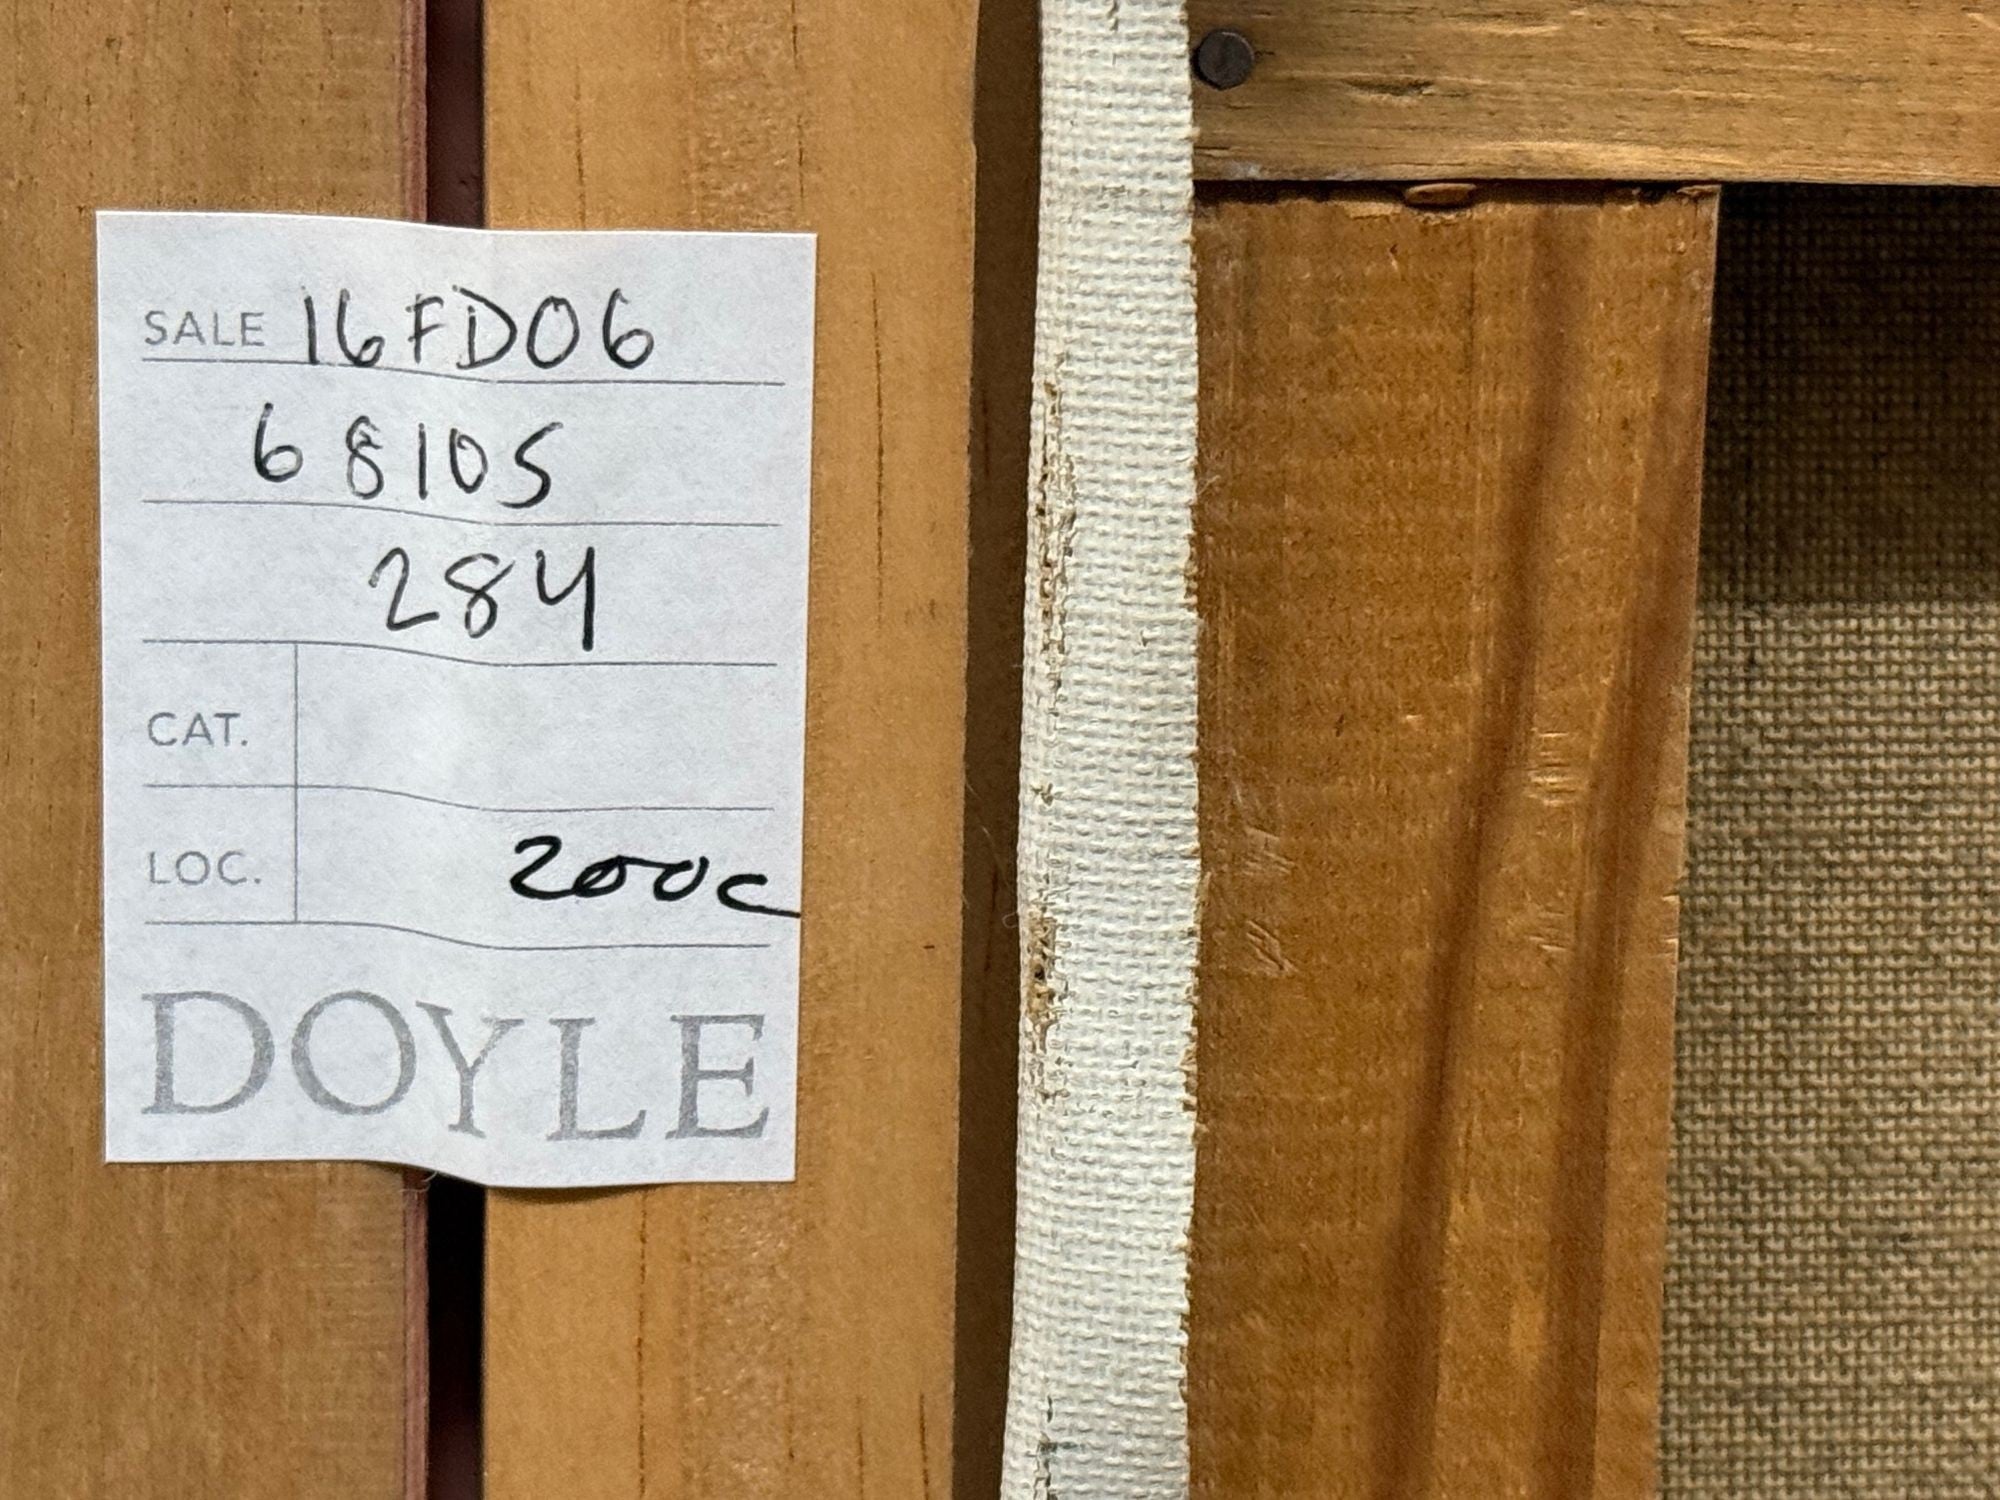 SALE 16FD06
68105
284
CAT.
LOC. 200c
DOYLE